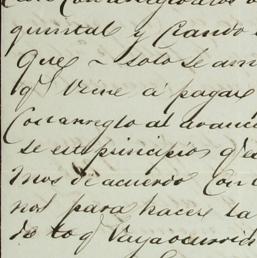 Con arreglo a los
quintal y Cuando
Que - solo se am
qe. viene á pagar
Con arreglo al aranc
se este principio qe. a
mos de acuerdo Con
nos para hacer la
do to qe. haya ocurrid